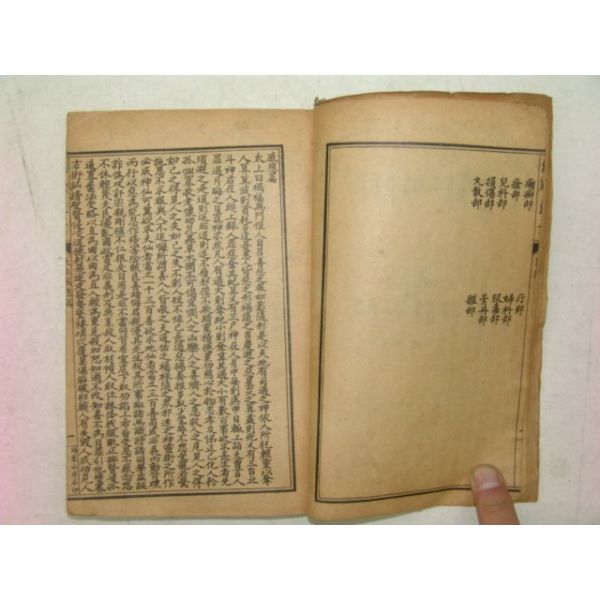 瘡部
兒科部
損傷部
丸散部
疔部
婦科部
膏丹部
雜部
感應篇
太上曰禍福無門惟人自召善惡之報如影隨形是以天地有司過之神依人所犯輕重以奪
人算算減則貧耗多逢憂患人皆惡之刑禍隨之吉慶避之惡星災之算盡則死又有三台北
斗神君在人頭上錄人罪惡奪其紀算又有三尸神在人身中每到庚申日輒上詣天曹言人
罪過月晦之日竈神亦然凡人有過大則奪紀小則奪算其過大小有數百事欲求長生者先
須避之是道則進非道則退不履邪徑不欺暗室積德累功慈心於物忠孝友悌正己化人矜
孤恤寡敬老懷幼昆蟲草木猶不可傷宜憫人之凶樂人之善濟人之急救人之危見人之得
如己之得見人之失如己之失不彰人短不炫己長遏惡揚善推多取少受辱不怨受寵若驚
施恩不求報與人不追悔所謂善人人皆敬之天道佑之福祿隨之衆邪遠之神靈衛之所作
必成神仙可冀欲求天仙者當立一千三百善欲求地仙者當立三百善苟或非義而動背理
而行以惡為能忍作殘害陰賊良善暗侮君親慢其先生叛其所事誑諸無識謗諸同學虛誣
詐偽攻訐宗親剛強不仁狠戾自用是非不當向背乖宜虐下取功諂上希旨受恩不感念怨
不休輕蔑天民擾亂國政賞及非義刑及無辜殺人取財傾人取位誅降戮服貶正排賢凌孤
逼寡棄法受賂以直為曲以曲為直入輕為重見殺加怒知過不改知善不為自罪引他壅塞
方術訕謗聖賢侵凌道德射飛逐走發蟄驚棲填穴覆巢傷胎破卵願人有失毀人成功危人